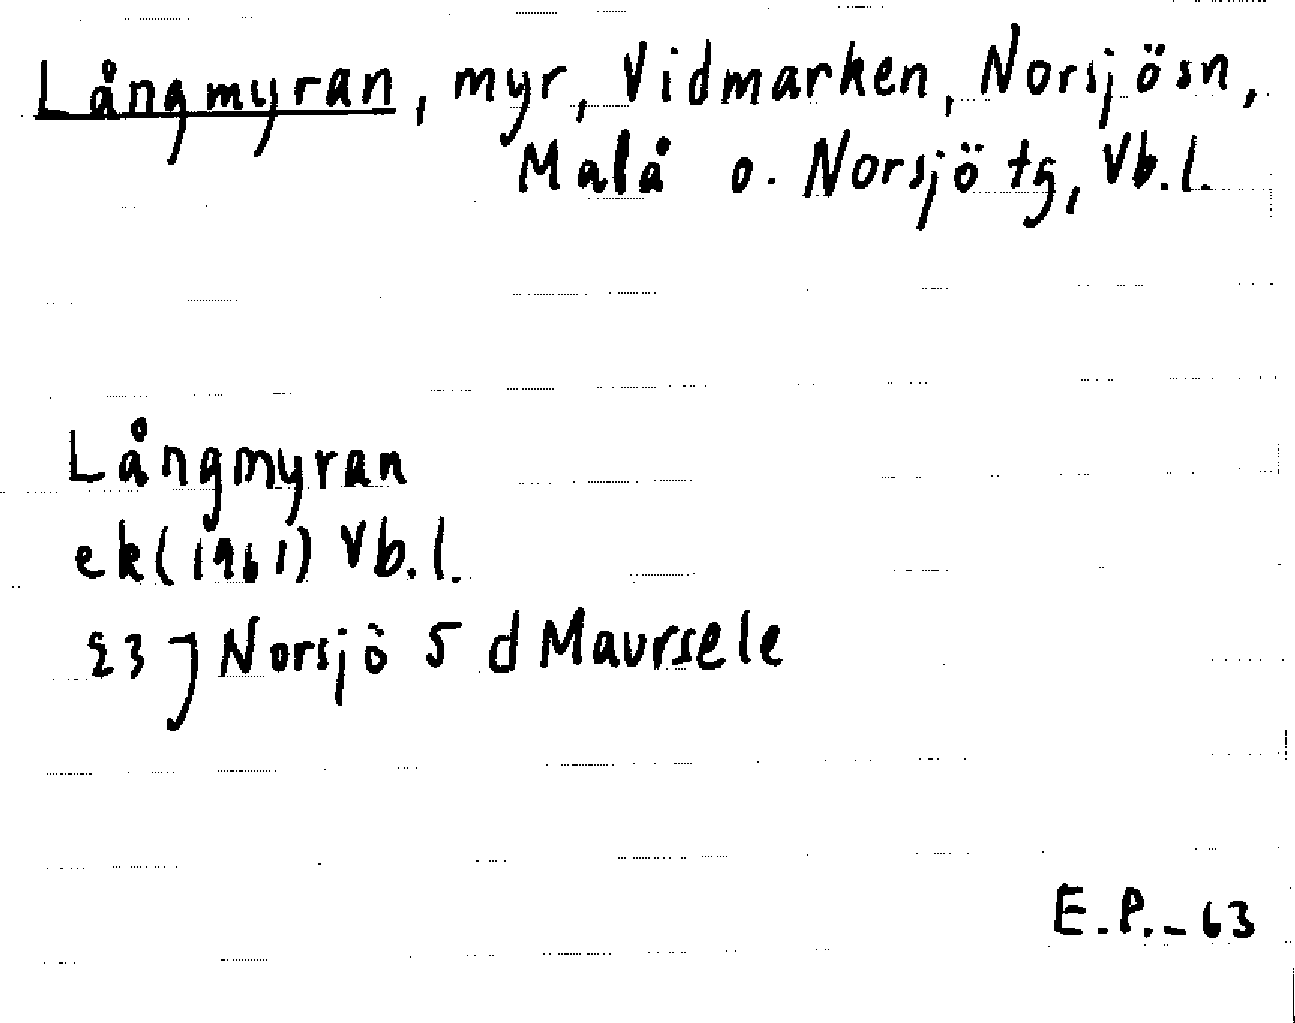 Långmyran, myr, Vidmarken, Norsjösn,
Malå o. Norsjö tg, Vb.l.
Långmyran
ek(1961) Vb.l.
23 J Norsjö S d Maursele
E.P.-63